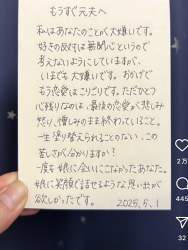 もうすぐ元夫へ
私はあなたのことが大嫌いです。
好きの反対は無関心というので
考えないようにしていますが、
いまでも大嫌いです。おかげで
もう恋愛はこりごりです。ただひとつ
心残りなのは、最後の恋愛が悲しみ
怒り、憎しみのまま終わっていること。
一生塗り替えられることのない、この
苦しさが分かりますか?
一度も娘に会いにこなかったあなた。
娘に笑顔で話せるような思い出が
欲しかったです。
2025.5.1
2万
445
32